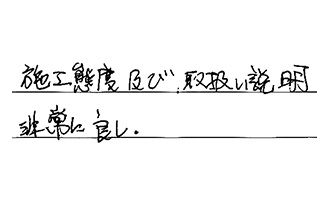 施工態度及び取扱い説明
非常に良し.